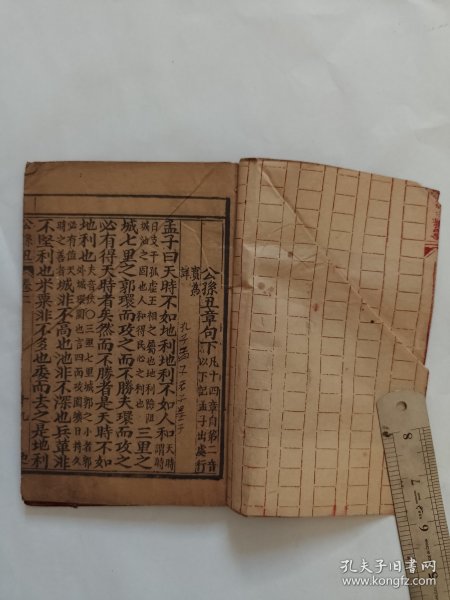 公孫丑章句下凡十四章自第二章
以下記孟子出處行
實為
詳
孟子曰天時不如地利地利不如人和天時謂時
日支干孤虛王相之屬也地利險阻
城池之固也人和得民心之和也三里之
城七里之郭環而攻之而不勝夫環而攻之
必有得天時者矣然而不勝者是天時不如
地利也夫音扶○三里七里城郭之小者郭
外城環圍也言四面攻圍曠日持久
必有值天
時之善者城非不高也池非不深也兵革非
不堅利也米粟非不多也委而去之是地利
公孫丑 卷二 十九
孔夫子旧书网
www.kongfz.com